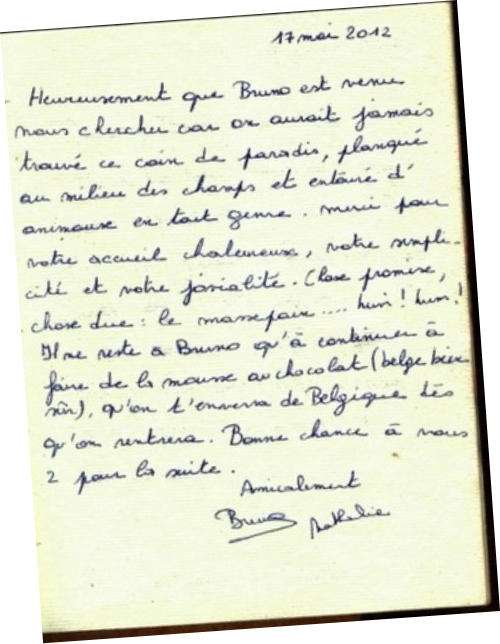 17 mai 2012
Heureusement que Bruno est venu
nous chercher car on aurait jamais
trouvé ce coin de paradis, planqué
au milieu des champs et entouré d'
animaux en tout genre. merci pour
votre accueil chaleureux, votre simpli-
cité et votre jovialité. Chose promise,
chose due : le massepain .... hum ! hum !
Il ne reste à Bruno qu'à continuer à
faire de la mousse au chocolat (belge bien
sûr), qu'on t'enverra de Belgique dès
qu'on rentrera. Bonne chance à vous
2 pour la suite.
Amicalement
Bruno Nathalie